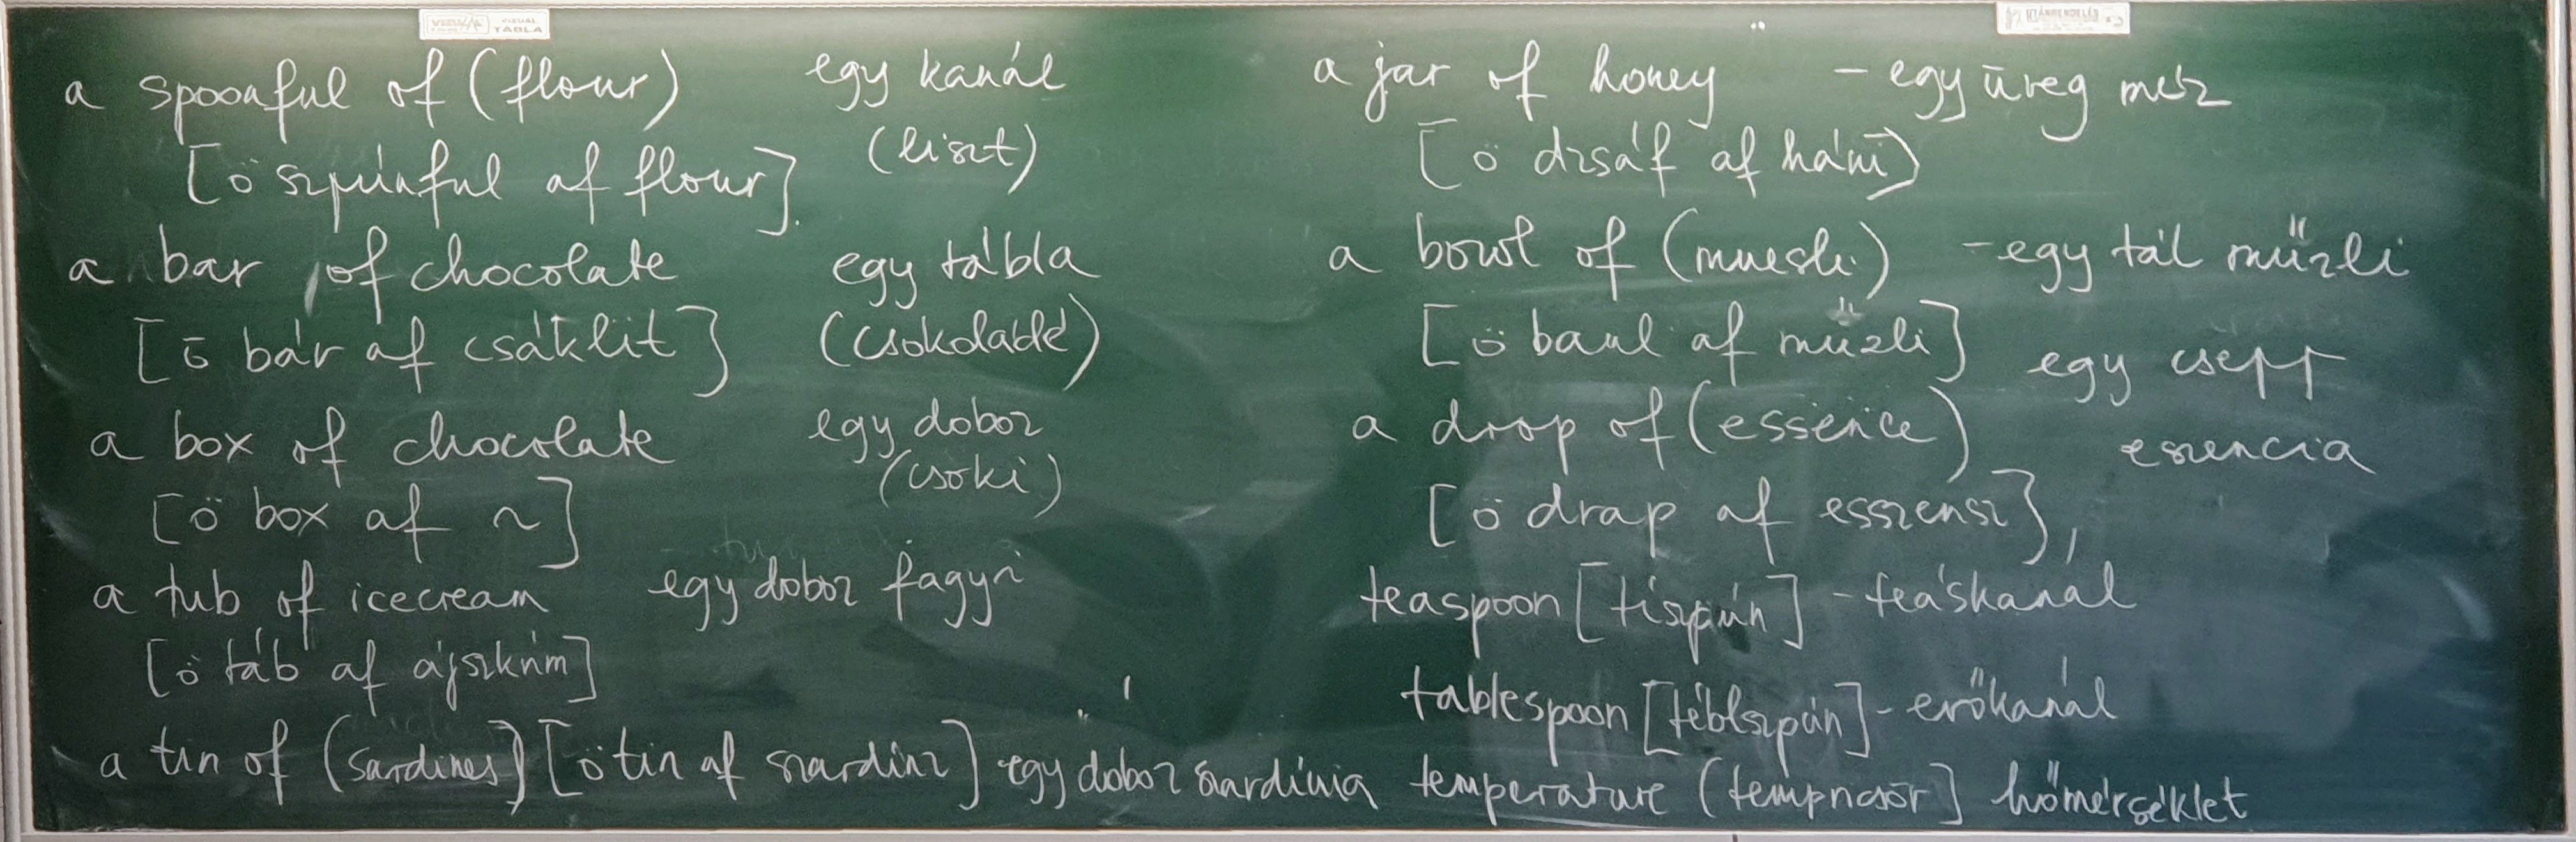 a spoonful of (flour) egy kanál
(liszt)
[ö szpúnful af flour].
a bar of chocolate egy tábla
[ö bár af csáklit] (csokoládé)
a box of chocolate egy doboz
(csoki)
[ö box af ~]
a tub of icecream egy doboz fagyi
[ö táb af ájszkrím]
a tin of (sardines) [ö tin af szardínz] egy doboz szardínia
a jar of honey - egy üveg méz
[ö dzsár af háni)
a bowl of (muesli) - egy tál műzli
[ö baul af műzli]
egy csepp
a drop of (essence)
eszencia
[ö drap af esszensz]
teaspoon [tíszpún] - teáskanál
tablespoon [téblszpún] - evőkanál
temperature (tempricsör] hőmérséklet
VISUAL
TÁBLA